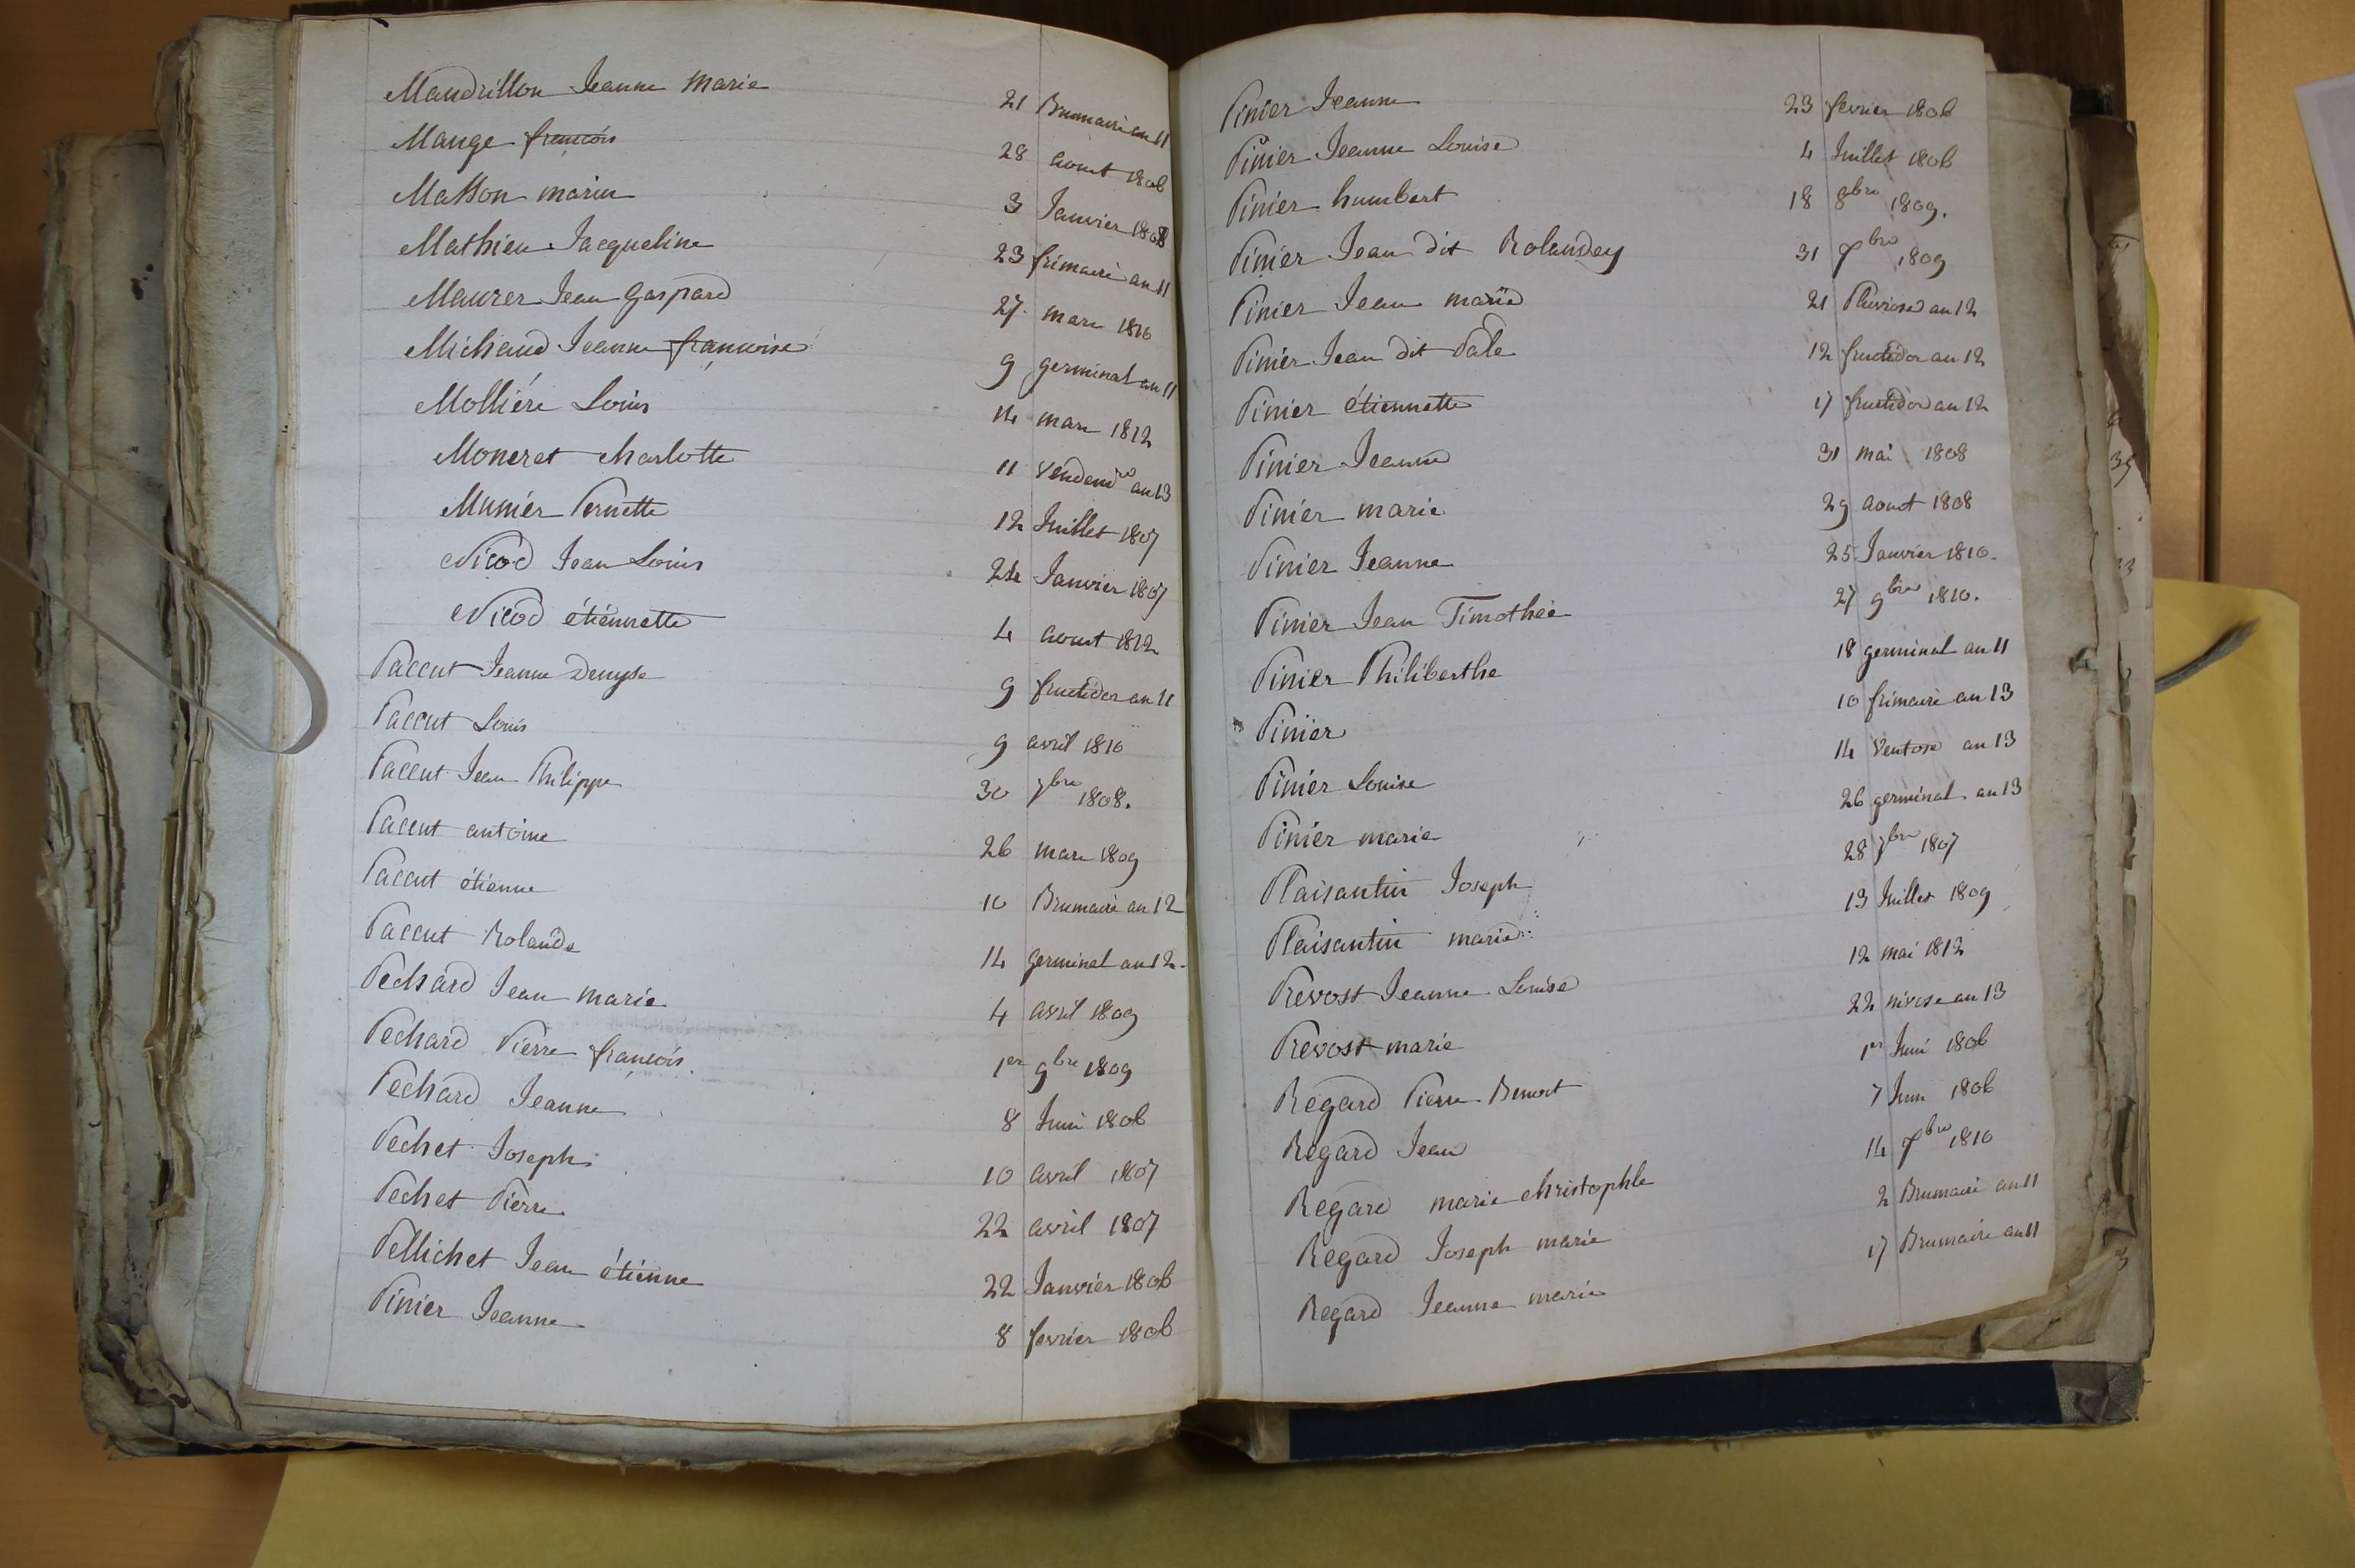 Maudrillon Jeanne Marie 21 Brumaire an 11
Mange françois 28 aout 1806
Masson marie 3 Janvier 1808
Mathieu Jacqueline 23 frimaire an 11
Maurer Jean Gaspard 27 mars 1810
Michaud Jeanne françoise 9 germinal an 11
Molliére Louis 14 mars 1812
Moneret charlotte 11 vendemre an 13
Munier Pernette 12 Juillet 1807
Nicod Jean Louis 24 Janvier 1807
Nicod étiennette 4 aout 1812
Paccut Jeanne Denyse 9 fructidor an 11
Paccut Louis 9 avril 1810
Paccut Jean Philippe 30 7bre 1808.
Paccut antoine 26 mars 1809
Paccut étienne 10 Brumaire an 12
Paccut Rolande 14 germinal an 12
Pechard Jean marie 4 avril 1809
Pechard Pierre françois 1er 9bre 1809
Pechard Jeanne 8 Juin 1806
Pechet Joseph 10 avril 1807
Pechet Pierre 22 avril 1807
Pellichet Jean étienne 22 Janvier 1806
Pinier Jeanne 8 fevrier 1806
Pinier Jeanne 23 fevrier 1806
Pinier Jeanne Louise 4 Juillet 1806
Pinier humbert 18 8bre 1809.
Pinier Jean dit Rolandey 31 7bre 1809
Pinier Jean marie 21 Pluviose an 12
Pinier Jean dit Pale 12 fructidor an 12
Pinier étiennette 17 fructidor an 12
Pinier Jeanne 31 mai 1808
Pinier marie 29 aout 1808
Pinier Jeanne 25 Janvier 1810.
Pinier Jean Timothée 27 9bre 1810.
Pinier Philiberthe 18 germinal an 11
Pinier 10 frimaire an 13
Pinier Louise 14 Ventose an 13
Pinier marie 26 germinal an 13
Plaisantin Joseph 28 7bre 1807
Plaisantin marie 13 Juillet 1809
Prevost Jeanne Louise 12 mai 1812
Prevost marie 22 nivose an 13
Regard Pierre Benoit 1er Juin 1806
Regard Jean 7 Juin 1806
Regard marie christophle 14 7bre 1810
Regard Joseph marie 2 Brumaire an 11
Regard Jeanne marie 17 Brumaire an 11